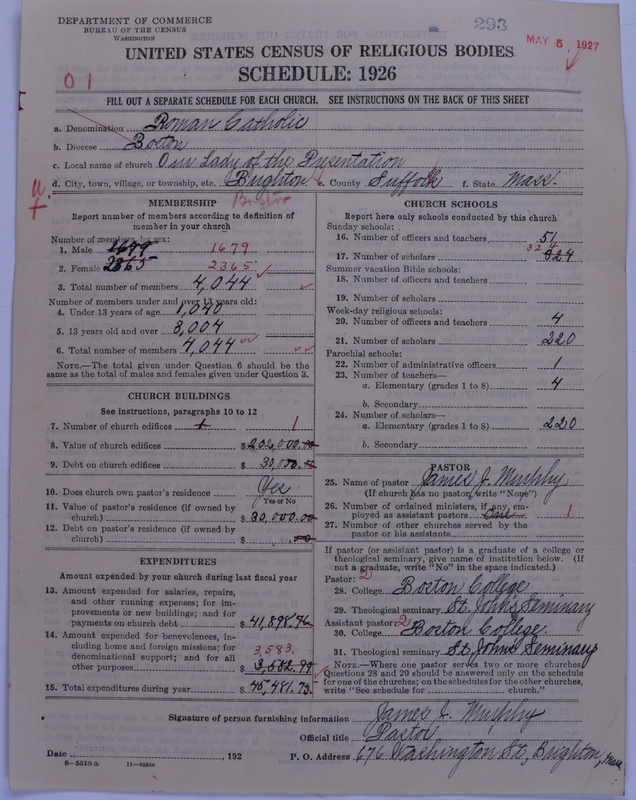 DEPARTMENT OF COMMERCE
BUREAU OF THE CENSUS
WASHINGTON
293
MAY 5 1927
UNITED STATES CENSUS OF RELIGIOUS BODIES
SCHEDULE: 1926
01
FILL OUT A SEPARATE SCHEDULE FOR EACH CHURCH. SEE INSTRUCTIONS ON THE BACK OF THIS SHEET
a. Denomination Roman Catholic
b. Diocese Boston
c. Local name of church Our Lady of the Presentation
d. City, town, village, or township, etc. Brighton e. County Suffolk f. State Mass.
MEMBERSHIP
Report number of members according to definition of
member in your church
Number of members by sex:
1. Male 1679 1679
2. Female 2365 2365
3. Total number of members 4,044
Number of members under and over 13 years old:
4. Under 13 years of age 1,040
5. 13 years old and over 3,004
6. Total number of members 4,044
NOTE.—The total given under Question 6 should be the
same as the total of males and females given under Question 3.
CHURCH BUILDINGS
See instructions, paragraphs 10 to 12
7. Number of church edifices 1 1
8. Value of church edifices $202,000.00
9. Debt on church edifices $ 30,000.00
10. Does church own pastor's residence Yes
Yes or No
11. Value of pastor's residence (if owned by
church) $ 30,000.00
12. Debt on pastor's residence (if owned by
church) $ .00
EXPENDITURES
Amount expended by your church during last fiscal year
13. Amount expended for salaries, repairs,
and other running expenses; for im-
provements or new buildings; and for
payments on church debt $ 41,898.76
14. Amount expended for benevolences, in-
cluding home and foreign missions; for
denominational support; and for all
other purposes $ 3,582.99
3,583.
15. Total expenditures during year $ 45,481.75
CHURCH SCHOOLS
Report here only schools conducted by this church
Sunday schools:
16. Number of officers and teachers 51
324
17. Number of scholars 324
Summer vacation Bible schools:
18. Number of officers and teachers
19. Number of scholars
Week-day religious schools:
20. Number of officers and teachers 4
21. Number of scholars 220
Parochial schools:
22. Number of administrative officers 1
23. Number of teachers—
a. Elementary (grades 1 to 8) 4
b. Secondary
24. Number of scholars—
a. Elementary (grades 1 to 8) 220
b. Secondary
PASTOR
25. Name of pastor James J. Murphy
(If church has no pastor, write "None")
26. Number of ordained ministers, if any, em-
ployed as assistant pastors One 1
27. Number of other churches served by the
pastor or his assistants
If pastor (or assistant pastor) is a graduate of a college or
theological seminary, give name of institution below. (If
not a graduate, write "No" in the space indicated.)
Pastor: 2
28. College Boston College
29. Theological seminary St. John's Seminary
Assistant pastor: 2
30. College Boston College
31. Theological seminary St. John's Seminary
NOTE.—Where one pastor serves two or more churches
Questions 28 and 29 should be answered only on the schedule
for one of the churches; on the schedules for the other churches,
write "See schedule for church."
Signature of person furnishing information James J. Murphy
Official title Pastor
Date , 192 P. O. Address 676 Washington St., Brighton, Mass